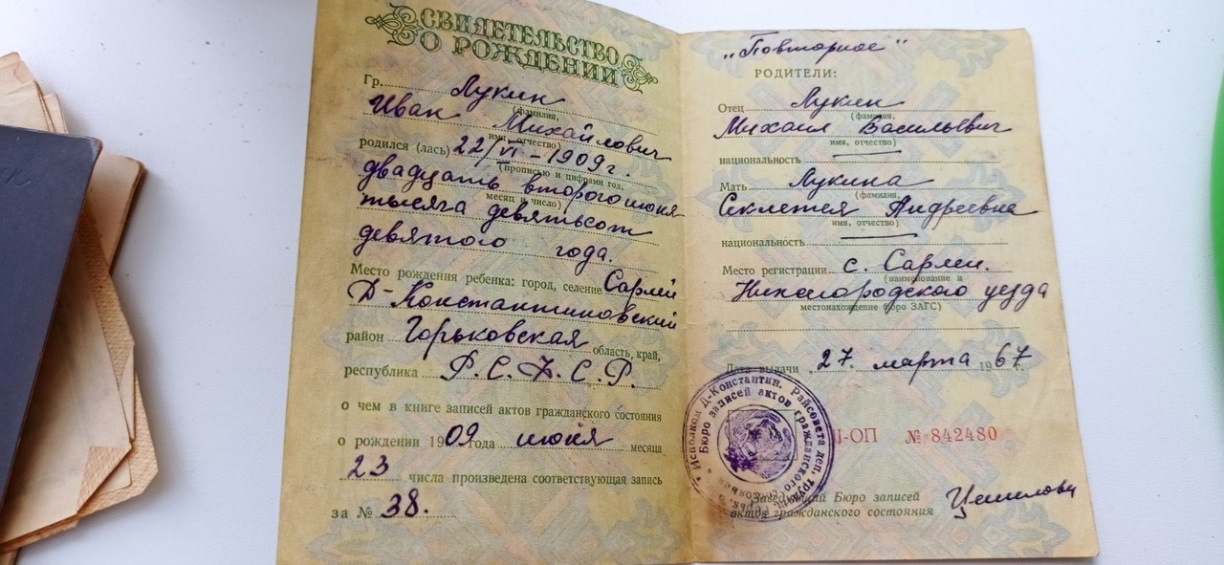 СВИДЕТЕЛЬСТВО
О РОЖДЕНИИ
Гр. Лукин
(фамилия,
Иван Михайлович
имя, отчество)
родился (лась) 22/VI - 1909 г.
(прописью и цифрами год,
двадцать второго июня
месяц и число)
тысяча девятьсот
девятого года.
Место рождения ребенка: город, селение Сарлей
Д-Константиновский
район Горьковская
область, край,
республика Р.С.Ф.С.Р.
о чем в книге записей актов гражданского состояния
о рождении 1909 года июня месяца
23 числа произведена соответствующая запись
за № 38.
„Повторное"
РОДИТЕЛИ:
Отец Лукин
(фамилия,
Михаил Васильевич
имя, отчество)
национальность
Мать Лукина
(фамилия,
Секлетея Андреевна
имя, отчество)
национальность
Место регистрации с. Сарлеи.
(наименование и
Нижегородского уезда
местонахождение бюро ЗАГС)
Дата выдачи „27. марта 1967 г.
-ОП № 842480
Исполком Д-Константин. Райсовета деп. труд.
Бюро записей актов гражданского
Заведующий Бюро записей
актов гражданского состояния